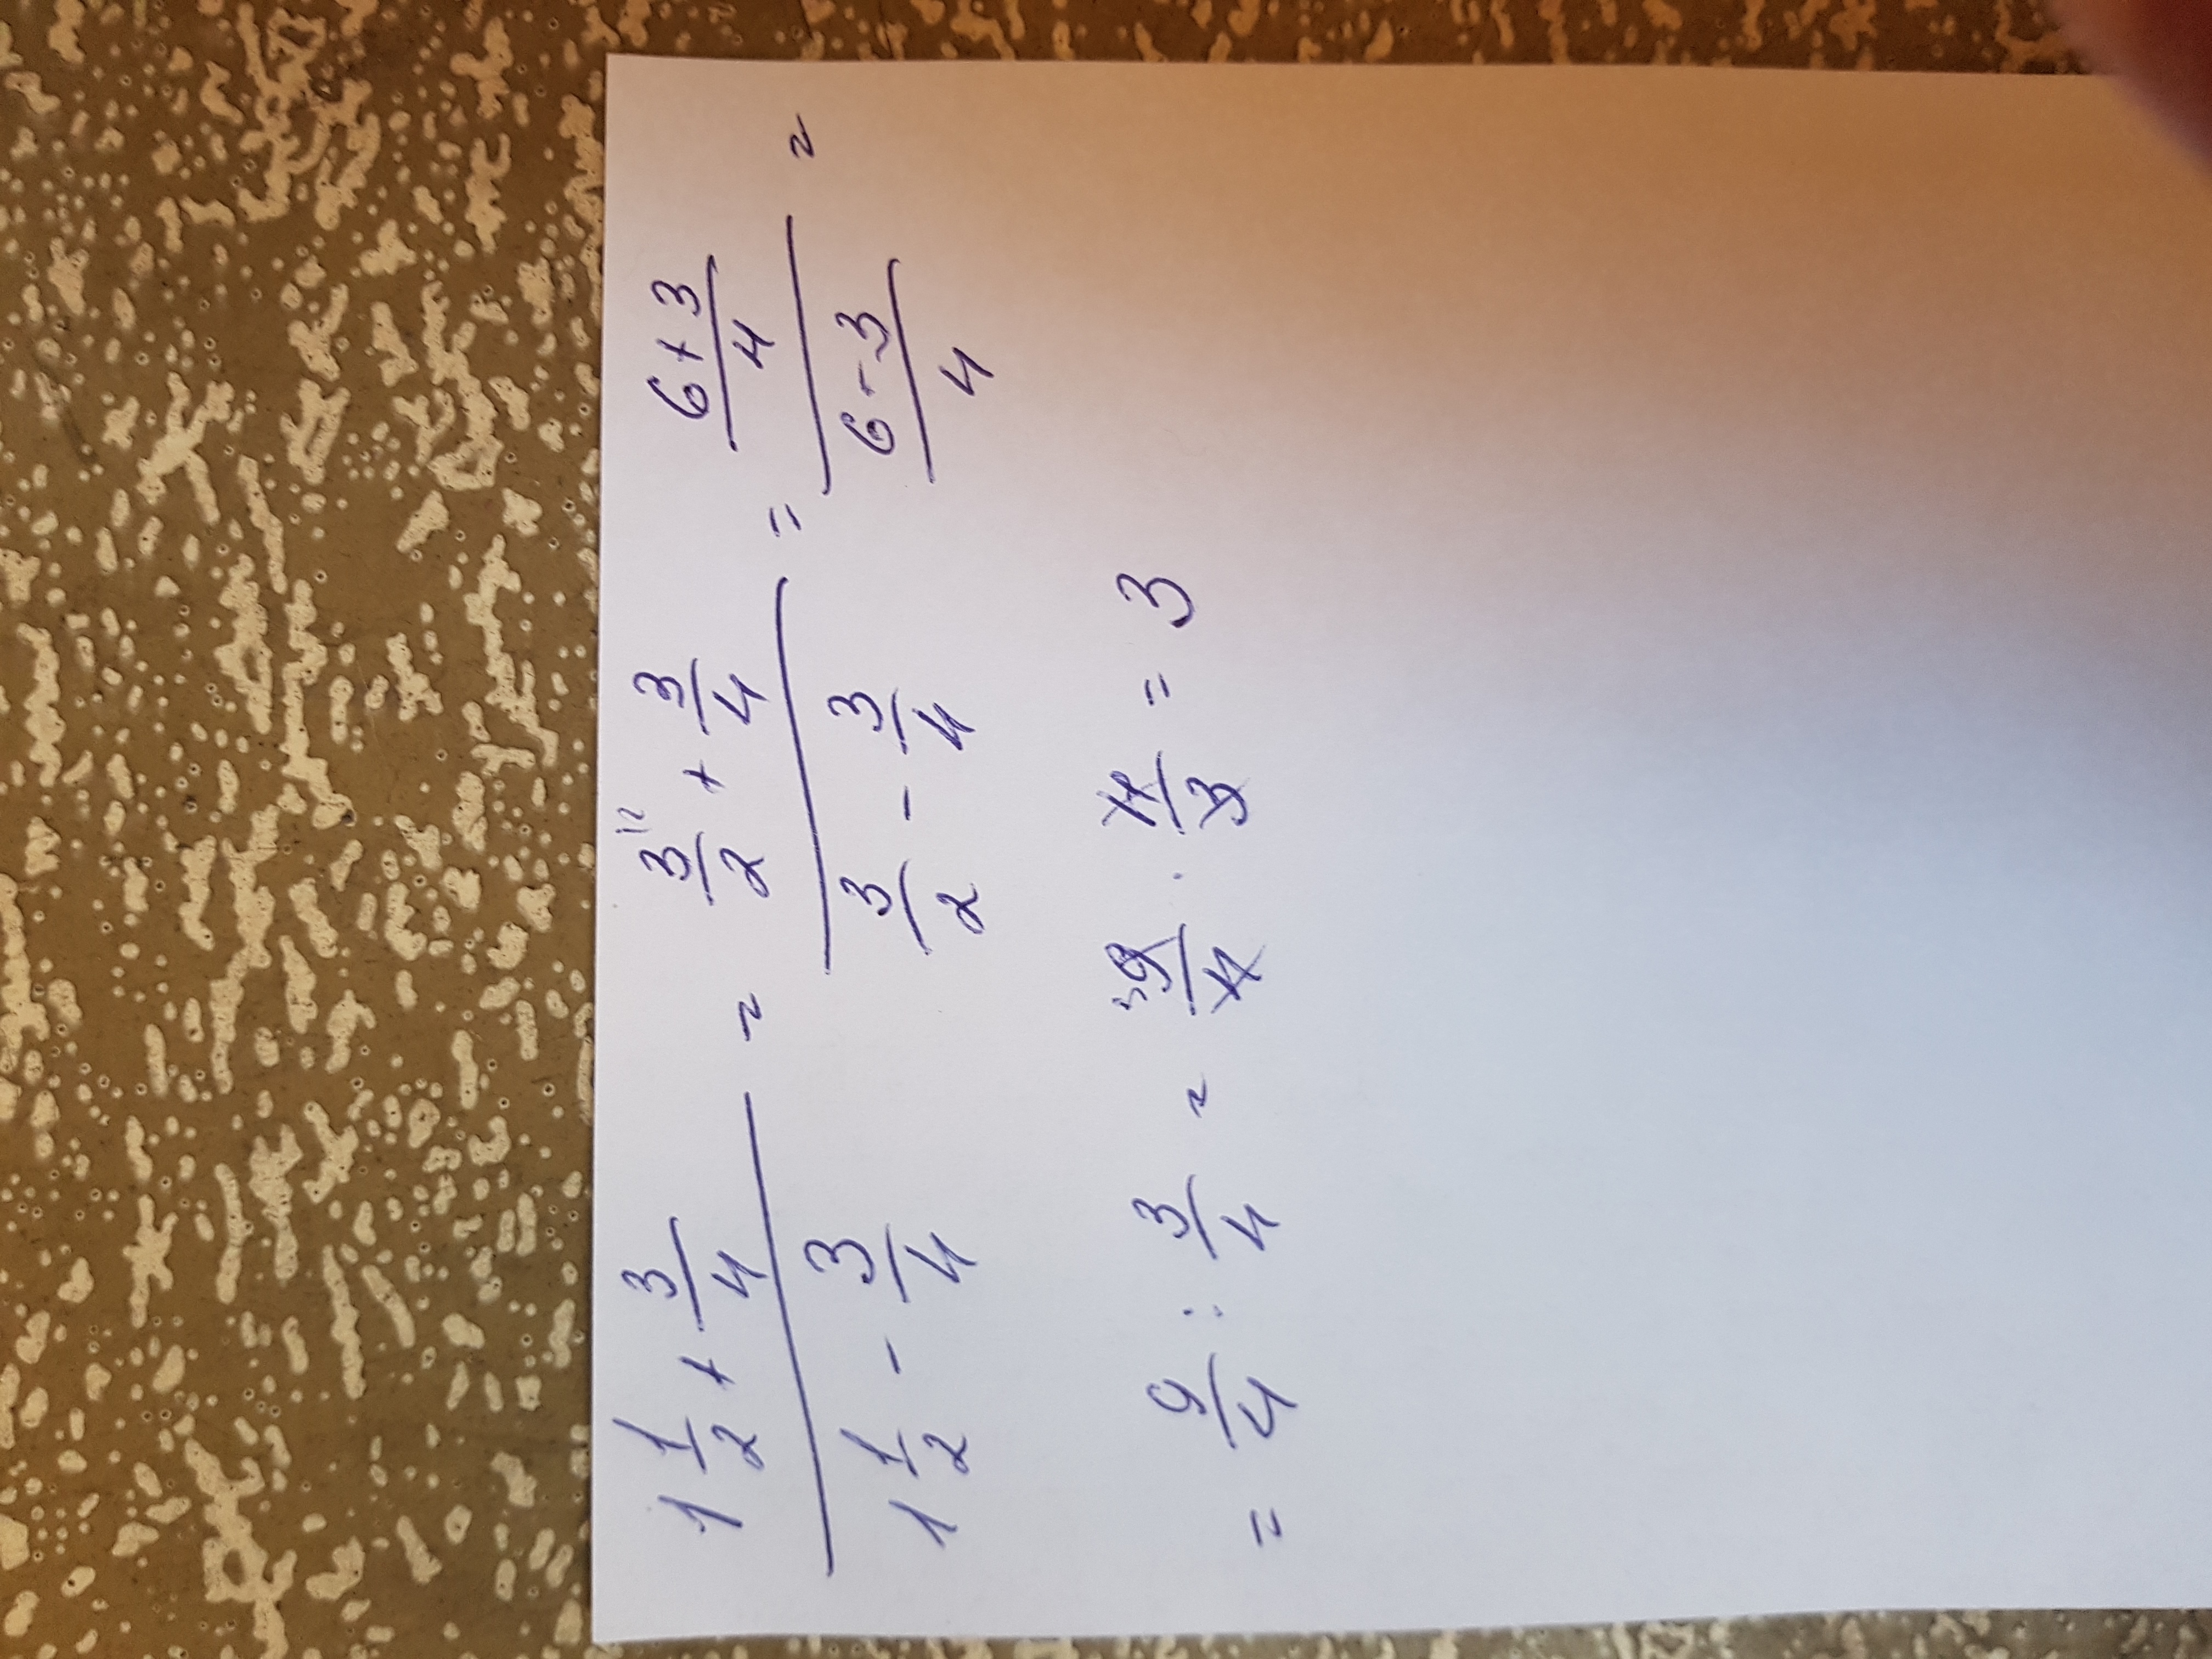 (1 1/2 + 3/4) / (1 1/2 - 3/4) = (3^12/2 + 3/4) / (3/2 - 3/4) = ((6+3)/4) / ((6-3)/4) =
= 9/4 : 3/4 = ^3 9/4 · 4/3 = 3